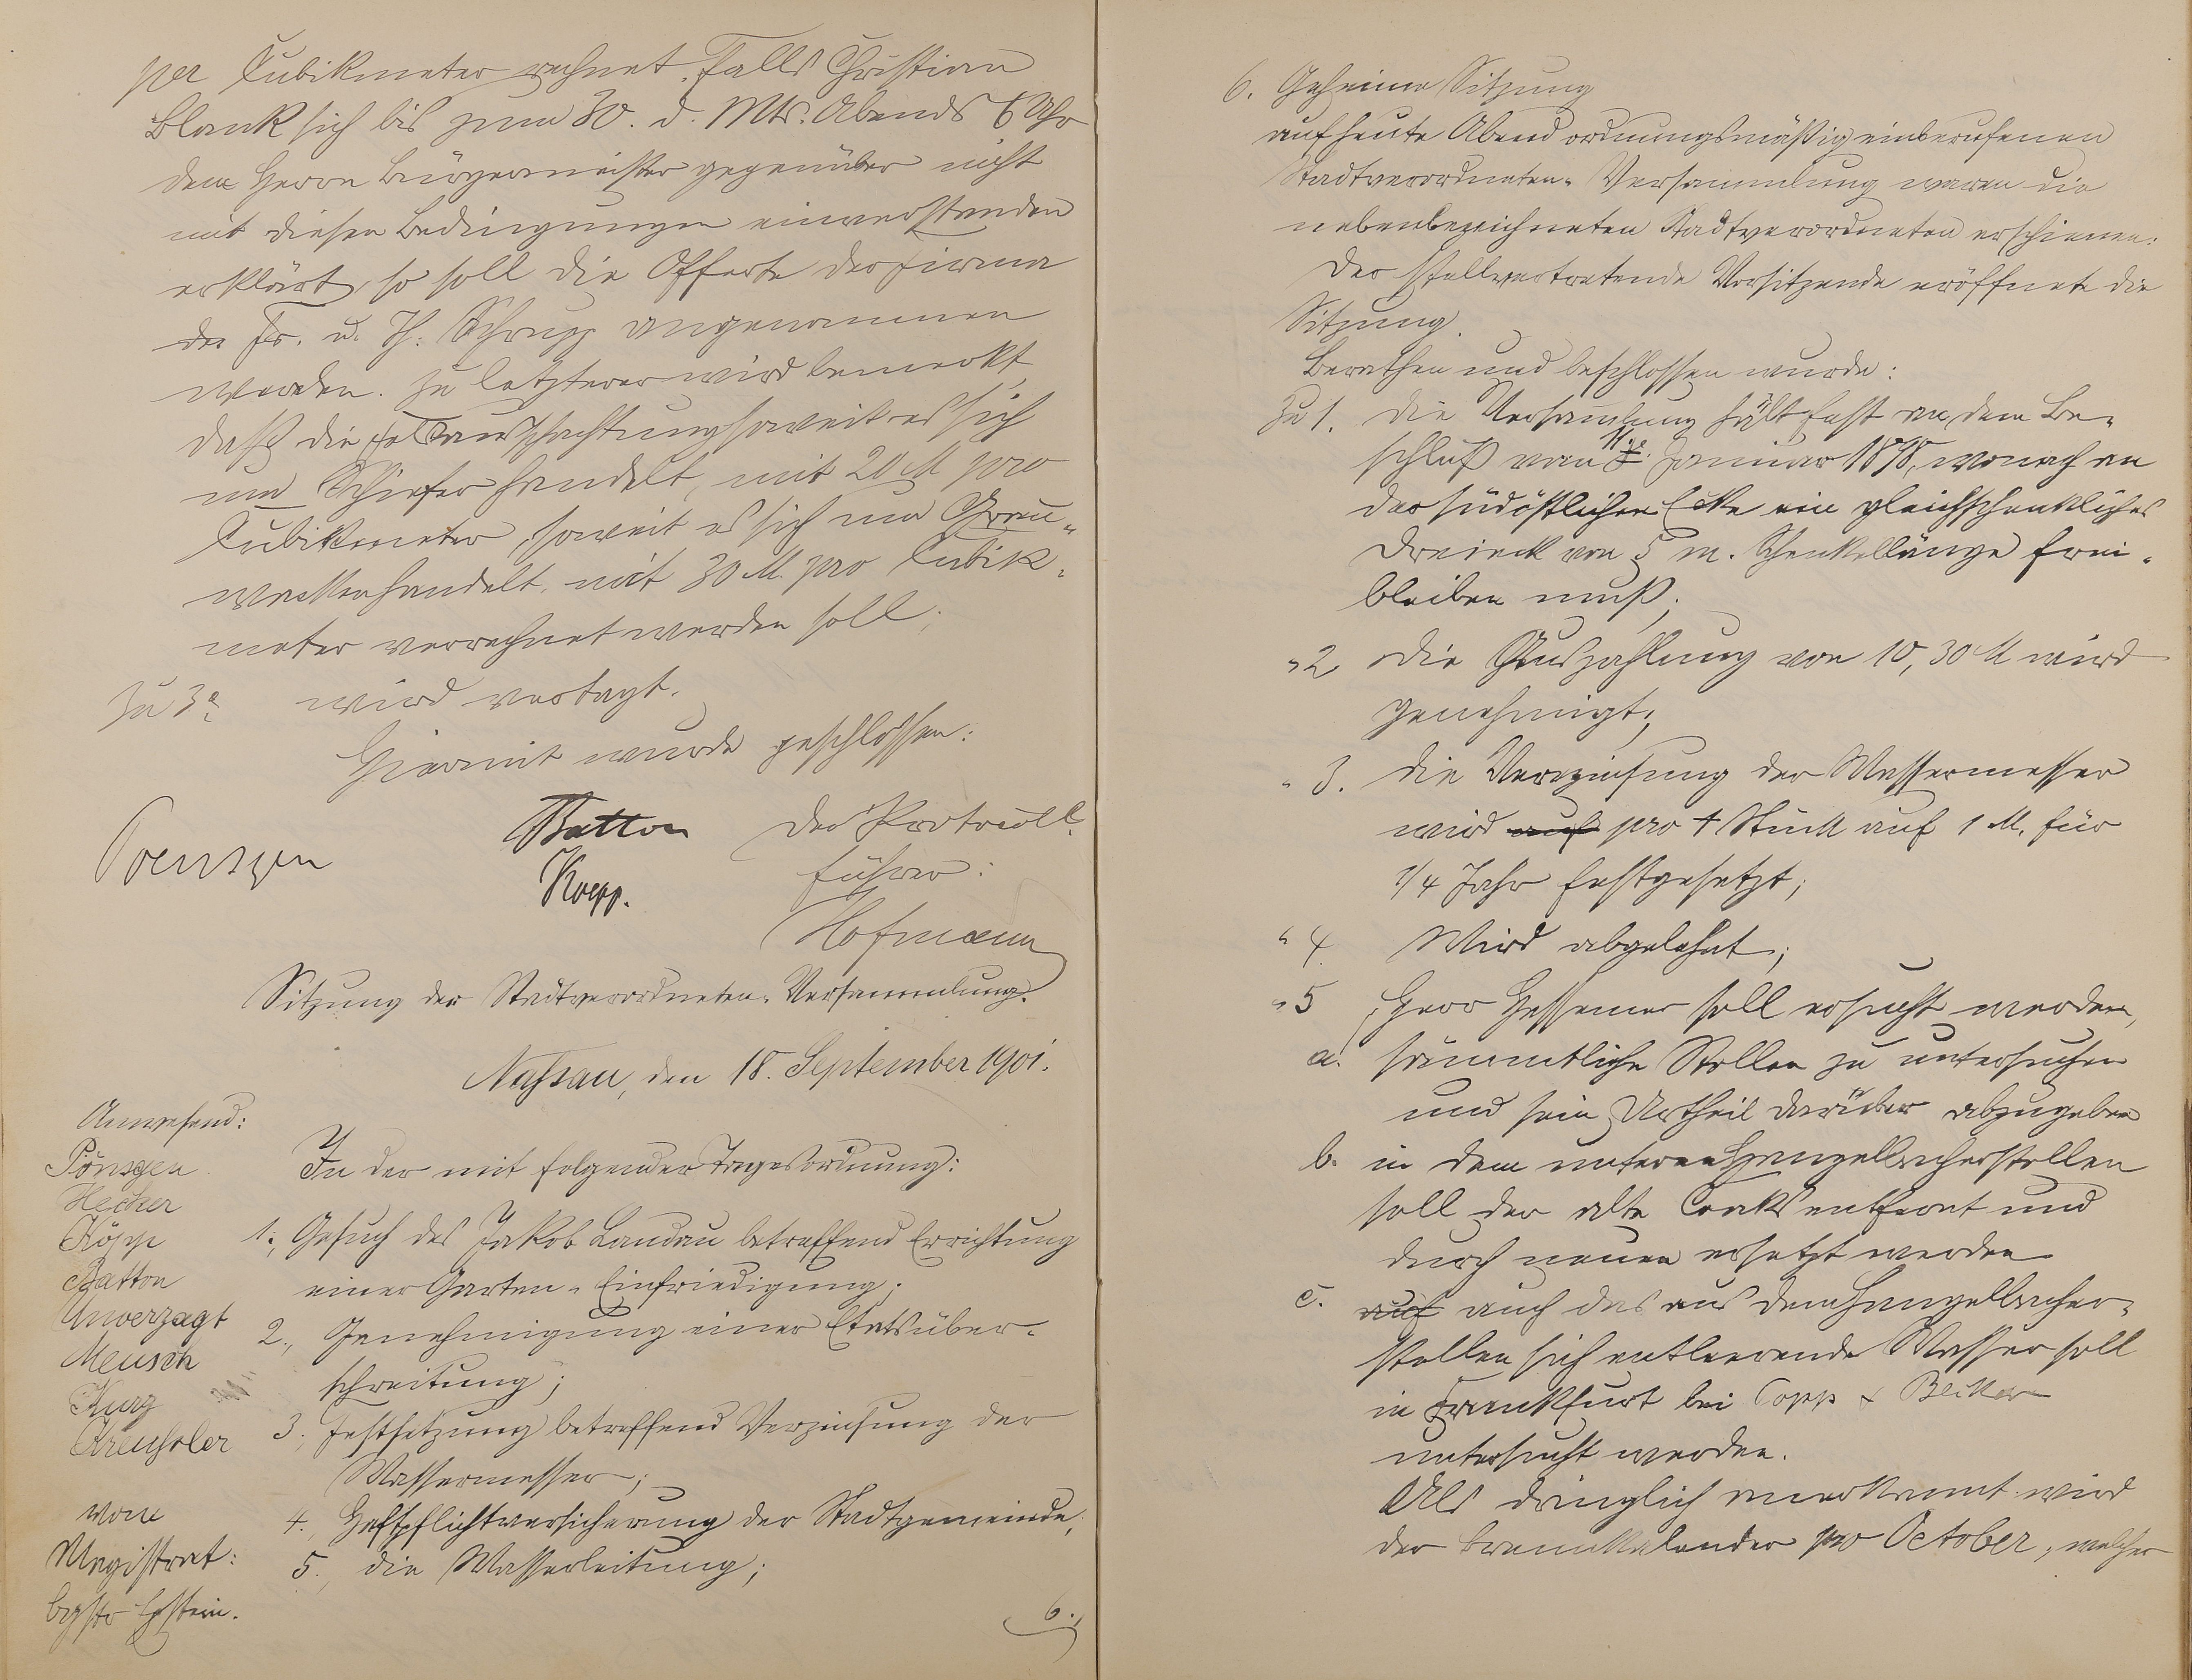 per Cubikmeter rechnet. Falls Christian
Blank sich bis zum 30. d. Mts. Abends 6 Uhr
dem Herrn Bürgermeister gegenüber nicht
mit diesen Bedingungen einverstanden
erklärt, so soll die Offerte der Firma
der Fr. u. Th. Schrupp angenommen
werden. Zu letzterer wird bemerkt,
daß die Felsausschachtung soweit es sich
um Schiefer handelt, mit 20 M pro
Cubikmeter, soweit es sich um Grau-
wacken handelt, mit 30 M. pro Cubik-
meter verrechnet werden soll;
Zu 3a wird vertagt.
Hiermit wurde geschlossen:
Poensgen Batton Der Protocoll-
Koepp. führer:
Hofmann
Sitzung der Stadtverordneten-Versammlung.
Nassau, den 18. September 1901.
Anwesend:
Pönsgen
Hecker
Köpp
Batton
Unverzagt
Meusch
Kurz
Kreußler
vom
Magistrat:
Bgstr Epstein.
In der mit folgender Tagesordnung:
1., Gesuch des Jakob Landau betreffend Errichtung
einer Garten-Einfriedigung;
2., Genehmigung einer Etatsüber-
schreitung;
3., Festsetzung betreffend Verzinsung der
Wassermesser;
4., Haftpflichtversicherung der Stadtgemeinde;
5., die Wasserleitung;
6.,
6. Geheime Sitzung
auf heute Abend ordnungsmäßig einberufenen
Stadtverordneten-Versammlung waren die
nebenbezeichneten Stadtverordneten erschienen:
Der stellvertretende Vorsitzende eröffnete die
Sitzung.
Berathen und beschlossen wurde:
Zu 1. Die Versamlung hält fest an dem Be-
schluß vom 11. Januar 1898, wonach an
der südöstlichen Ecke ein gleichschenkliches
Dreieck von 5 m. Schenkellänge frei-
bleiben muß;
" 2 Die Auszahlung von 10,30 M wird
genehmigt;
" 3. die Verzinsung der Wassermesser
wird auf pro 1 Stück auf 1 M. für
1/4 Jahr festgesetzt;
" 4. Wird abgelehnt;
" 5 Herr Hessemer soll ersucht werden,
a. sämmtliche Stollen zu untersuchen
und sein Urtheil darüber abzugeben
b. in dem unteren Hengelbacherstollen
soll der alte Coaks entfernt und
durch neuen ersetzt werden
c. auf auch das aus dem Hengelbacher-
stollen sich entleerende Wasser soll
in Frankfurt bei Popp & Becker
untersucht werden.
Als dringlich anerkannt wird
der Brennkalender pro October, welcher